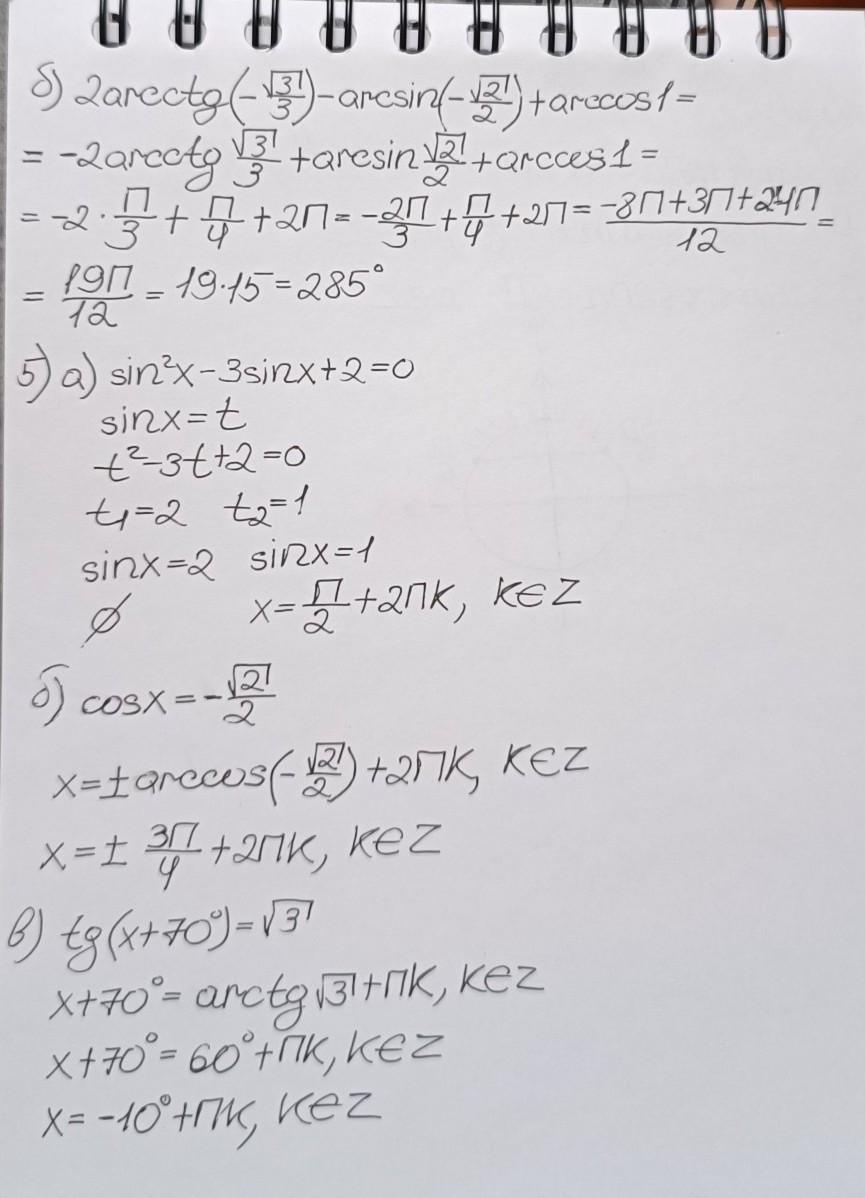 б) 2arcctg(-√3/3)-arcsin(-√2/2)+arccos1=
= -2arcctg √3/3 +arcsin √2/2 +arccos1=
= -2 · П/3 + П/4 + 2П = -2П/3 + П/4 + 2П = -8П+3П+24П/12 =
= 19П/12 = 19·15 = 285°
5) а) sin²x-3sinx+2=0
sinx=t
t²-3t+2=0
t₁=2 t₂=1
sinx=2 sinx=1
∅ x= П/2 +2ПК, К∈Z
б) cosx = -√2/2
x=±arccos(-√2/2)+2ПК, К∈Z
x=± 3П/4 +2ПК, К∈Z
в) tg(x+70°)=√3
x+70°= arctg√3+ПК, К∈Z
x+70°= 60°+ПК, К∈Z
x= -10°+ПК, К∈Z